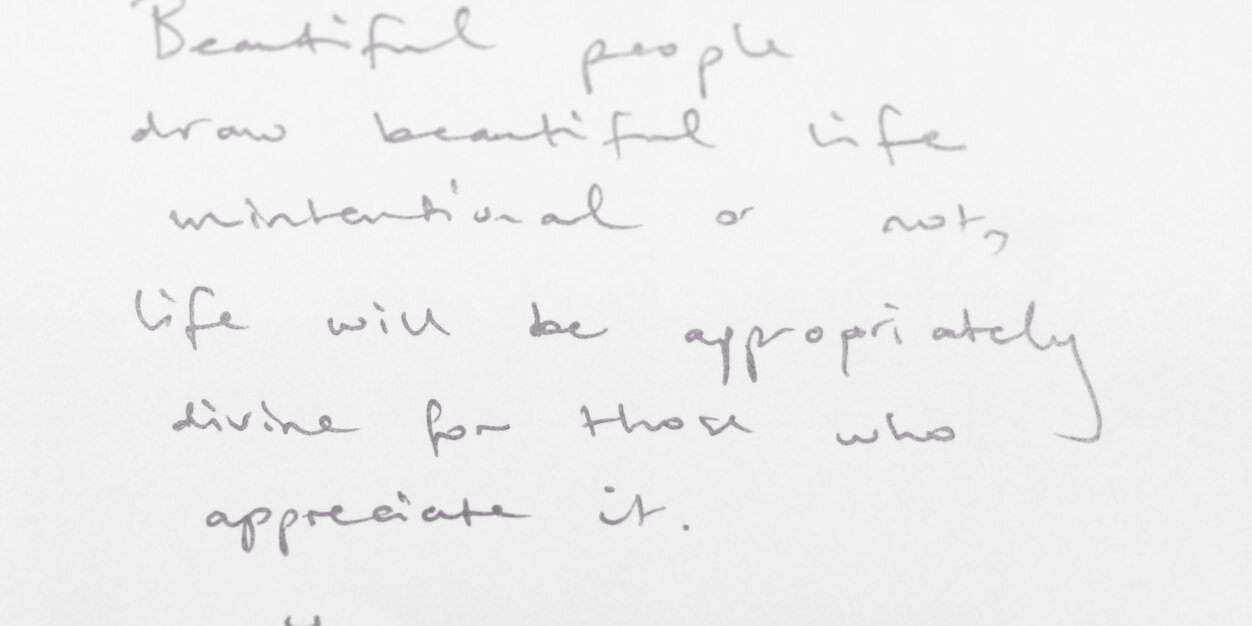 Beautiful people
draw beautiful life
unintentional or not,
life will be appropriately
divine for those who
appreciate it.